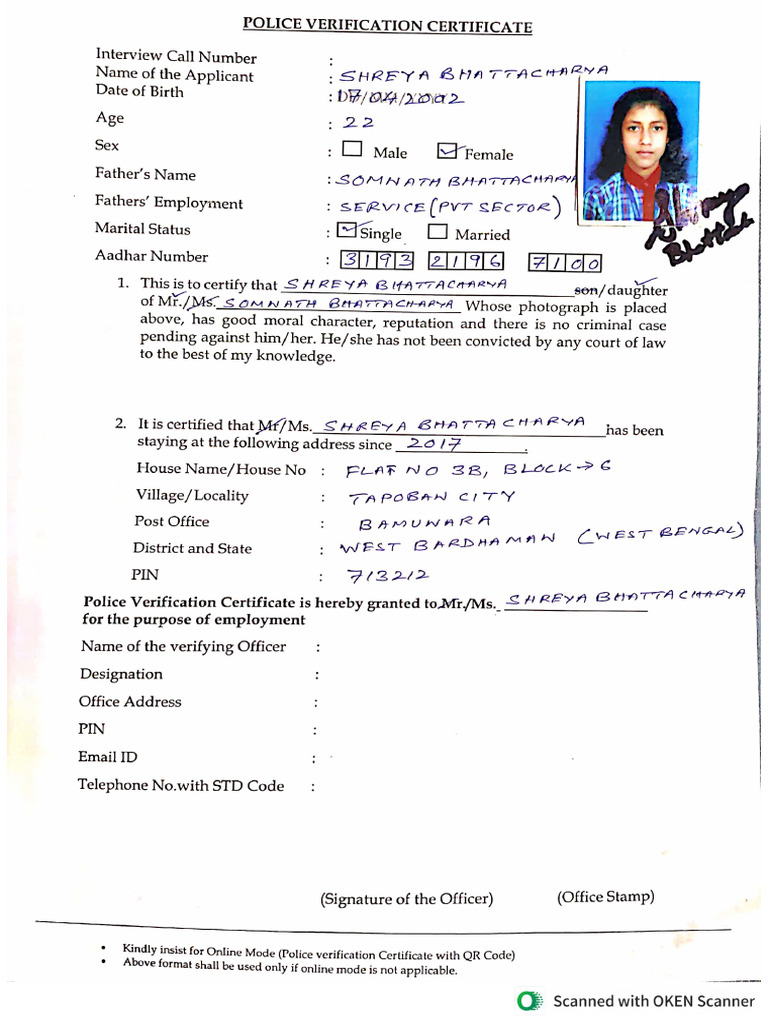 POLICE VERIFICATION CERTIFICATE
Interview Call Number :
Name of the Applicant : SHREYA BHATTACHARYA
Date of Birth : 17/04/2002
Age : 22
Sex : Male Female
Father's Name : SOMNATH BHATTACHARYA
Fathers' Employment : SERVICE (PVT SECTOR)
Marital Status : Single Married
Aadhar Number : 3193 2196 7100
Bhatta
1. This is to certify that SHREYA BHATTACHARYA son/daughter
of Mr./Ms. SOMNATH BHATTACHARYA Whose photograph is placed
above, has good moral character, reputation and there is no criminal case
pending against him/her. He/she has not been convicted by any court of law
to the best of my knowledge.
2. It is certified that Mr/Ms. SHREYA BHATTACHARYA has been
staying at the following address since 2017.
House Name/House No : FLAT NO 3B, BLOCK→6
Village/Locality : TAPOBAN CITY
Post Office : BAMUWARA
District and State : WEST BARDHAMAN (WEST BENGAL)
PIN : 713212
Police Verification Certificate is hereby granted to Mr./Ms. SHREYA BHATTACHARYA
for the purpose of employment
Name of the verifying Officer :
Designation :
Office Address :
PIN :
Email ID :
Telephone No.with STD Code :
(Signature of the Officer) (Office Stamp)
• Kindly insist for Online Mode (Police verification Certificate with QR Code)
• Above format shall be used only if online mode is not applicable.
Scanned with OKEN Scanner